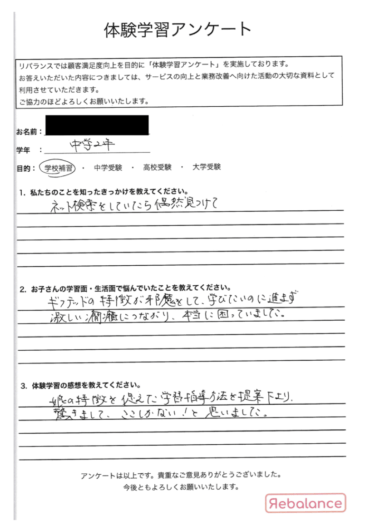 体験学習アンケート
リバランスでは顧客満足度向上を目的に「体験学習アンケート」を実施しております。
お答えいただいた内容につきましては、サービスの向上と業務改善へ向けた活動の大切な資料として
利用させていただきます。
ご協力のほどよろしくお願いいたします。
お名前：
学年 ： 中学2年
目的： 学校補習 ・ 中学受験 ・ 高校受験 ・ 大学受験
1. 私たちのことを知ったきっかけを教えてください。
ネット検索をしていたら偶然見つけて
2. お子さんの学習面・生活面で悩んでいたことを教えてください。
ギフテッドの特徴が邪魔をして、学びたいのに進まず
激しい癇癪につながり、本当に困っていました。
3. 体験学習の感想を教えてください。
娘の特徴を捉えた学習指導方法を提案下さり、
驚きまして、ここしかない！と思いました。
アンケートは以上です。貴重なご意見ありがとうございました。
今後ともよろしくお願いいたします。
Rebalance